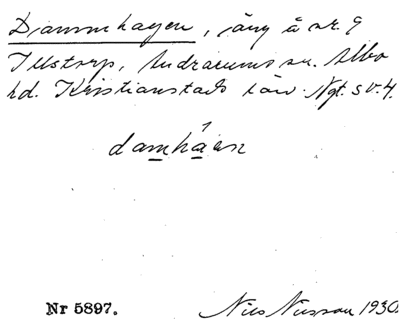 Dammhagen, äng å nr. 9
Illstorp, Andrarums sn. Albo
hd. Kristianstads län. Ngt. s.v. 4.
damhåen
Nr 5897.
Nils Nilsson 1930.